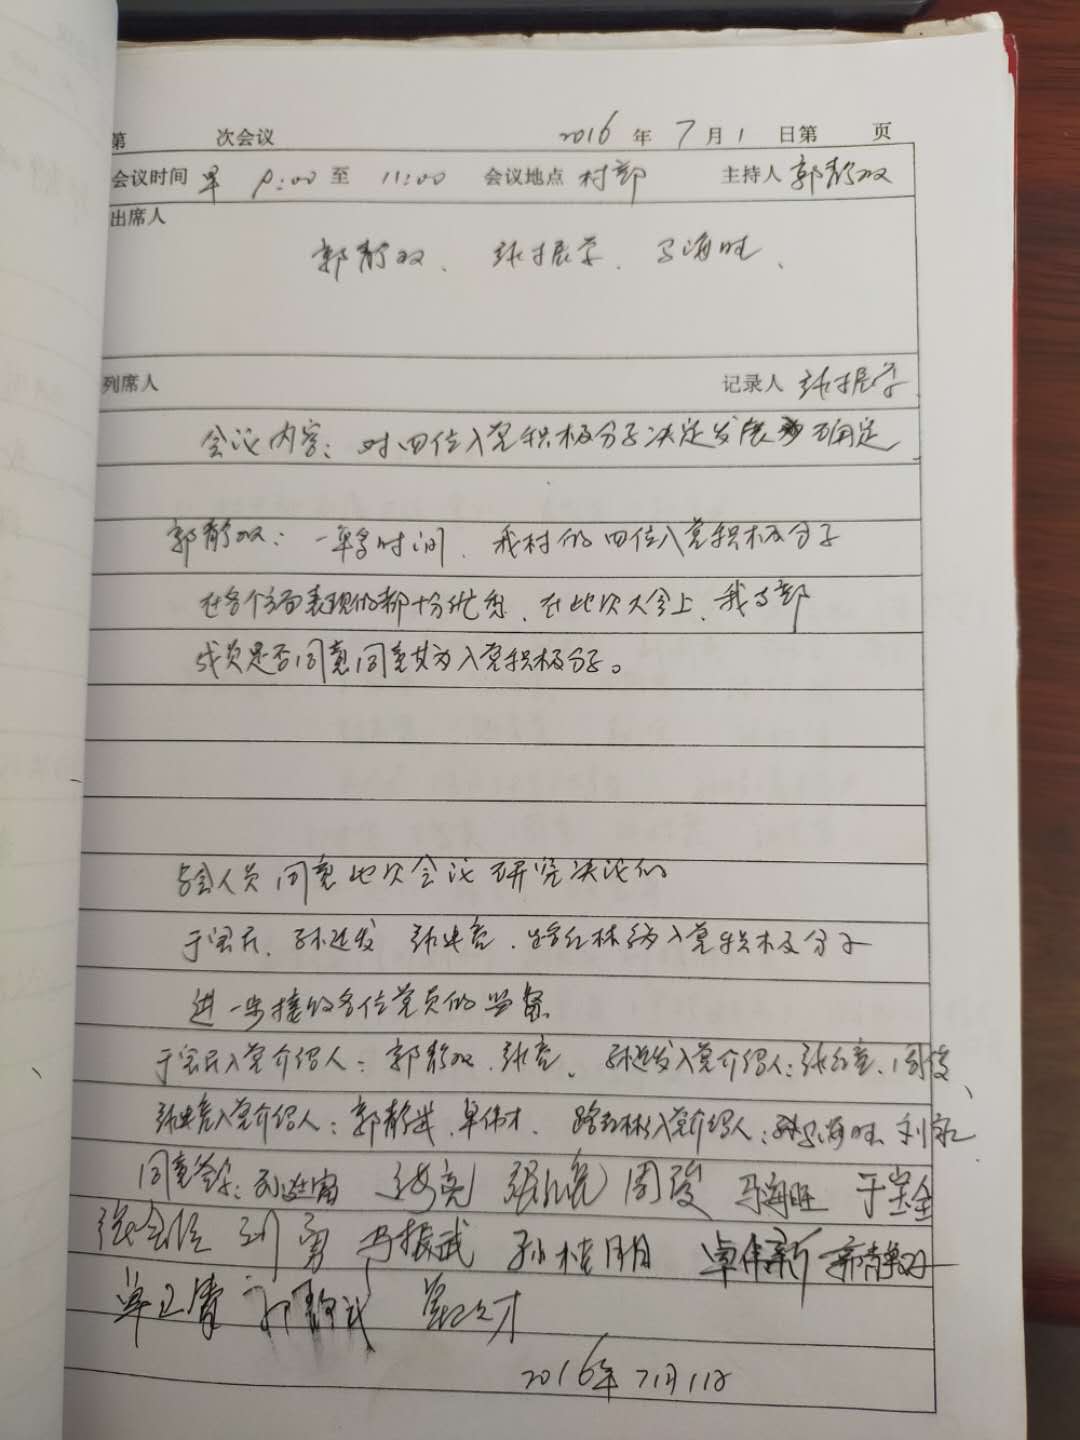 第 次会议 2016 年 7 月 1 日第 页
会议时间 早 9:00 至 11:00 会议地点 村部 主持人 郭静双
出席人
郭静双、张振学、马海旺、
列席人 记录人 张振学
会议内容：对四位入党积极分子决定发展 确定
郭静双：一年多时间、我村的四位入党积极分子
在各个方面表现的都十分优秀、在此次大会上、我支部
成员是否同意同意其为入党积极分子。
与会人员同意此次会议研究决议的
于宝兵、孙延发 张建奎、路红林 为入党积极分子
进一步接收各位党员的监督
于宝兵入党介绍人：郭静双、张亮、孙延发入党介绍人：张 亮、周俊、
张建奎入党介绍人：郭静武、卓伟才、路红林入党介绍人：马海旺、刘
同意签字： 周俊 马海旺 于宝全
张会 刘勇 马振武 孙桂明 卓伟新 郭静双
单卫清 郭静武 才
2016年7月1日